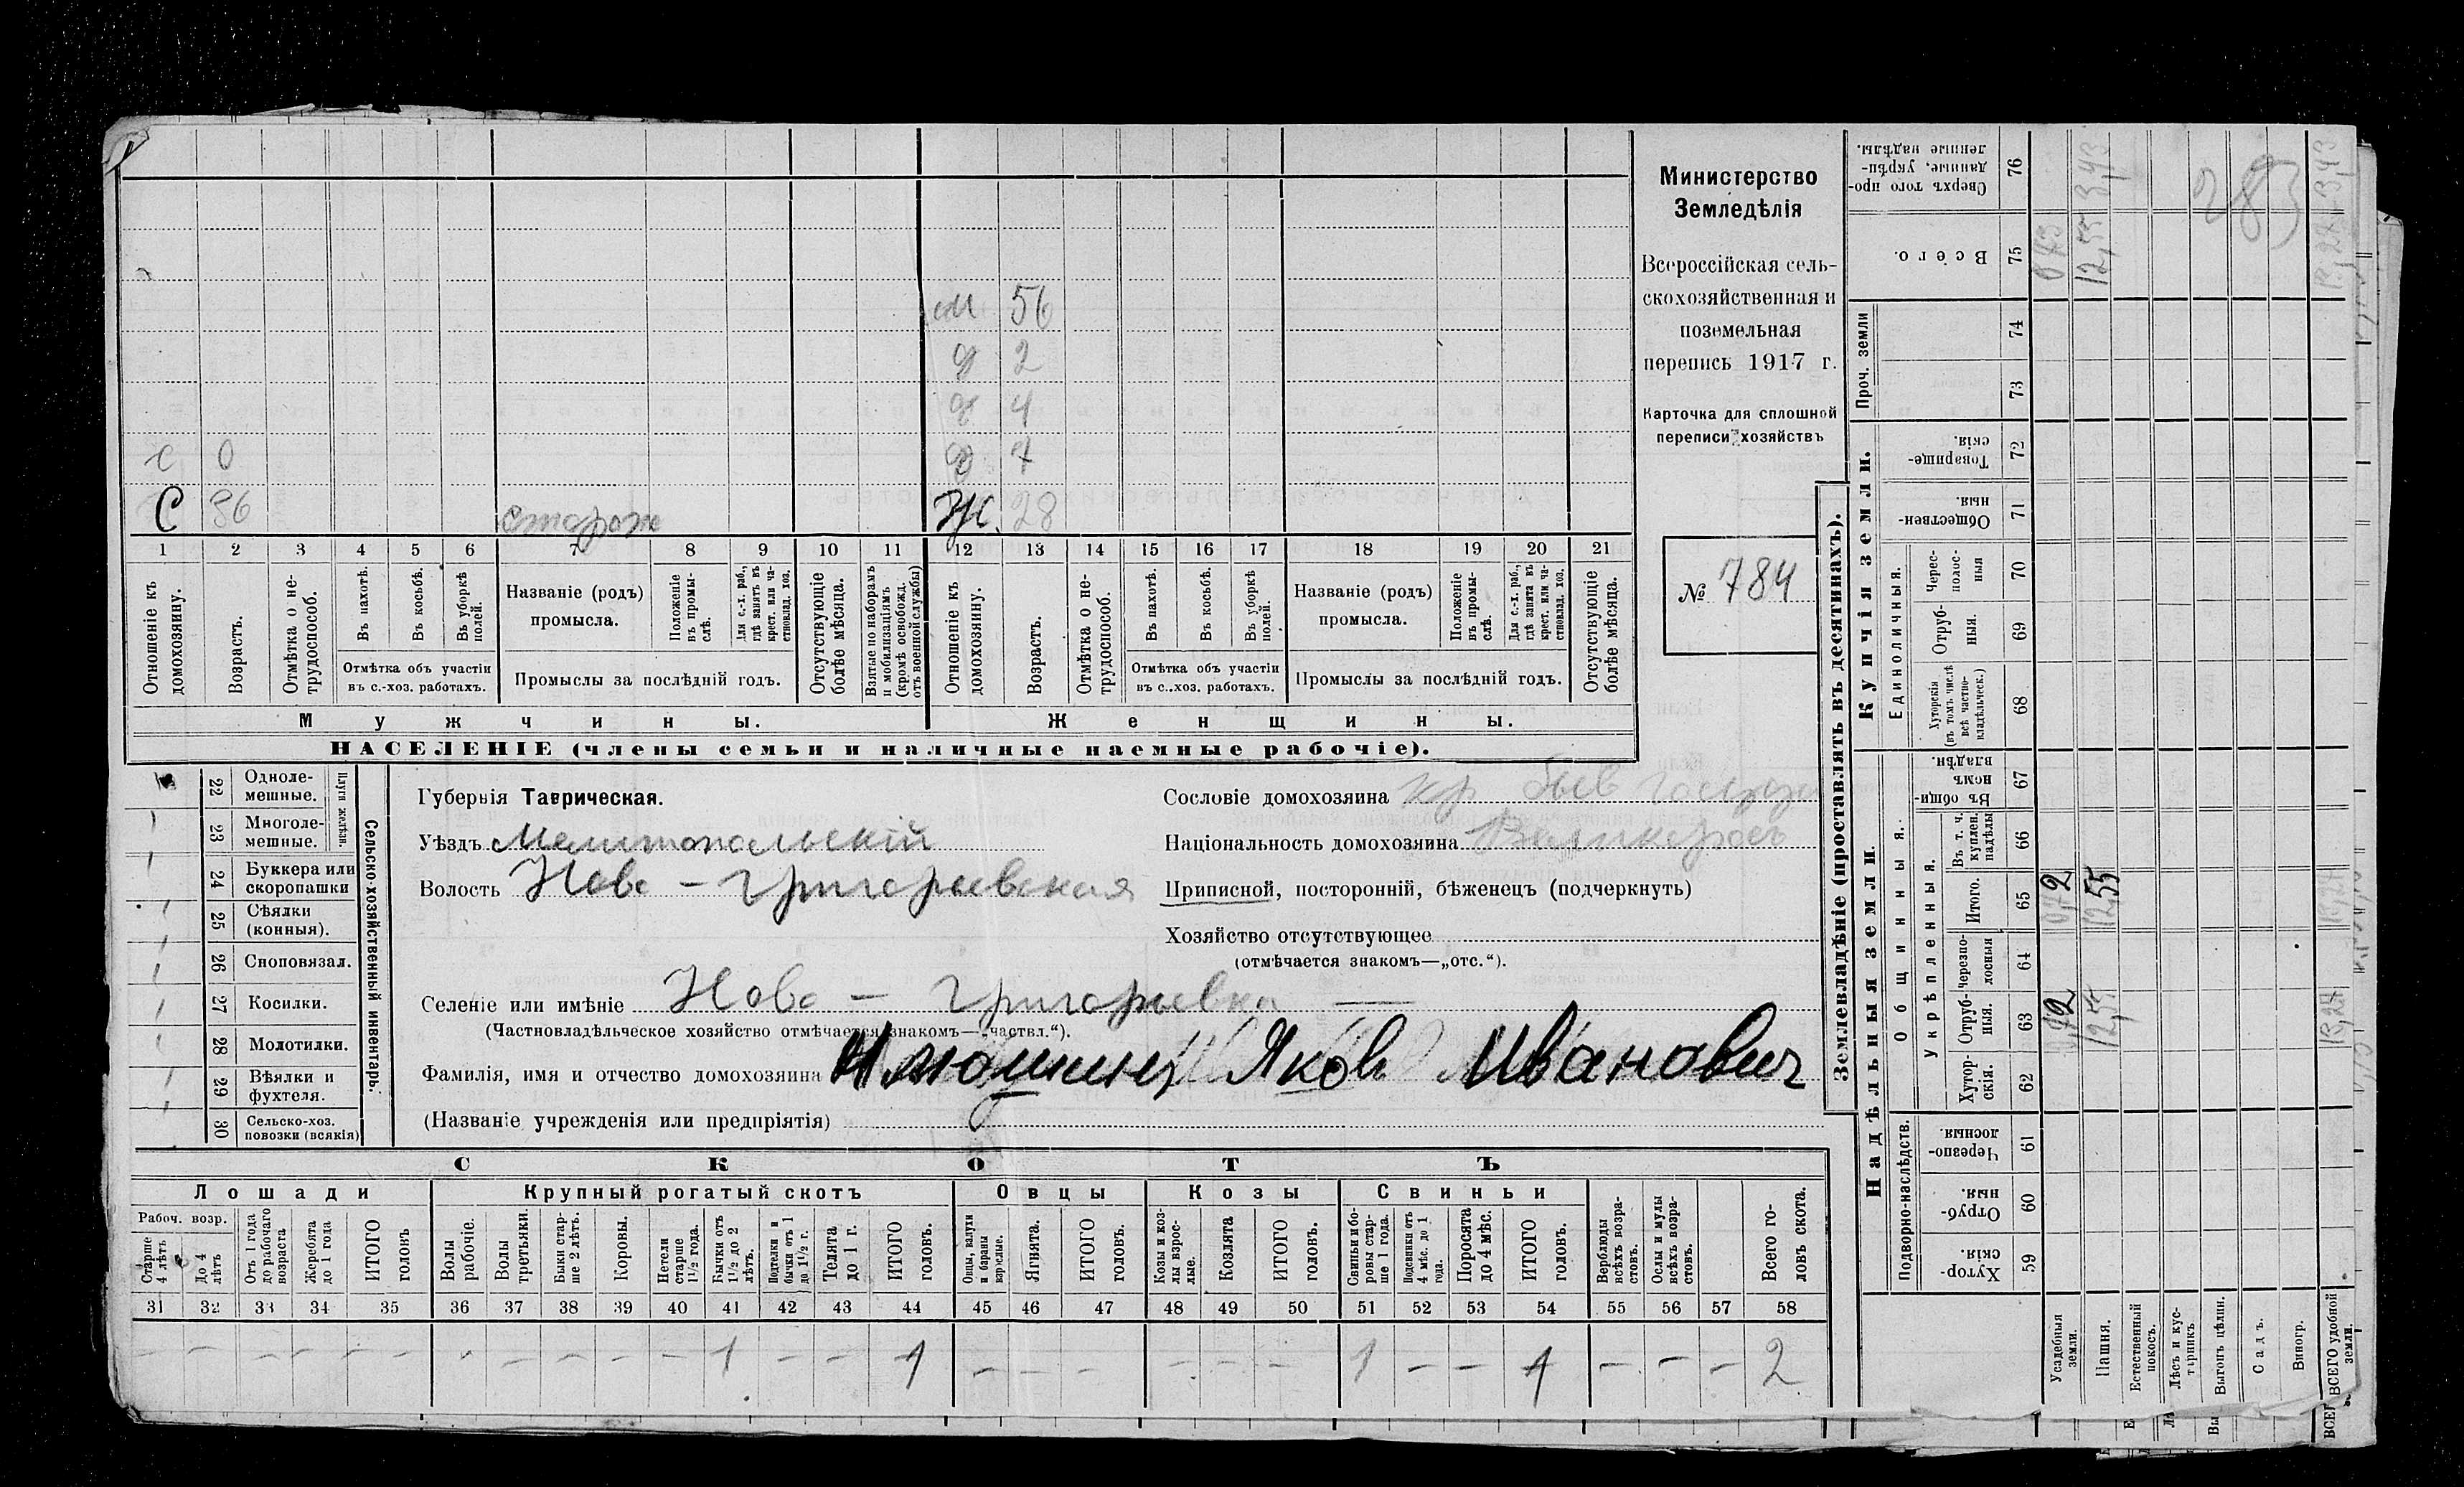 Министерство
Земледѣлія
Всероссійская сель-
скохозяйственная и
поземельная
перепись 1917 г.
Карточка для сплошной
переписи хозяйствъ
№ 784
м 56
д 2
д 4
с 0 д 7
С 36 сторож Ж. 28
1 2 3 4 5 6 7 8 9 10 11 12 13 14 15 16 17 18 19 20 21
Отношеніе къ домохозяину.
Возрастъ.
Отмѣтка о не-трудоспособ.
Въ пахотѣ.
Въ косьбѣ.
Въ уборкѣ полей.
Отмѣтка объ участіи
въ с.-хоз. работахъ.
Названіе (родъ)
промысла.
Положеніе въ промы-слѣ.
Для с.-х. раб., гдѣ занятъ въ крест. или ча-стновлад. хоз.
Промыслы за послѣдній годъ.
Отсутствующіе болѣе мѣсяца.
Взятые по наборамъ и мобилизаціямъ (кромѣ освобожд. отъ военной службы)
Отношеніе къ домохозяину.
Возрастъ.
Отмѣтка о не-трудоспособ.
Въ пахотѣ.
Въ косьбѣ.
Въ уборкѣ полей.
Отмѣтка объ участіи
въ с..хоз. работахъ.
Названіе (родъ)
промысла.
Положеніе въ промы-слѣ.
Для с.-х. раб., гдѣ занята въ крест. или ча-стновлад. хоз.
Промыслы за послѣдній годъ.
Отсутствующіе болѣе мѣсяца.
Мужчины.
Женщины.
НАСЕЛЕНІЕ (члены семьи и наличные наемные рабочіе).
22 Одноле-мешные.
23 Многоле-мешные.
Плуги желѣзн.
24 Буккера или скоропашки
25 Сѣялки (конныя).
26 Сноповязал.
27 Косилки.
28 Молотилки.
29 Вѣялки и фухтеля.
30 Сельско-хоз. повозки (всякія)
Сельско-хозяйственный инвентарь.
Губернія Таврическая.
Уѣздъ Мелитопольскій
Волость Ново - Григорьевская
Сословіе домохозяина кр быв
Національность домохозяина Великоросъ
Приписной, посторонній, бѣженецъ (подчеркнуть)
Хозяйство отсутствующее
(отмѣчается знакомъ—„отс.“).
Селеніе или имѣніе Ново - Григорьевка
(Частновладѣльческое хозяйство отмѣчается знакомъ—„частвл.“).
Фамилія, имя и отчество домохозяина Яков Иванович
(Названіе учрежденія или предпріятія)
СКОТЪ
Лошади
Крупный рогатый скотъ
Овцы
Козы
Свиньи
Рабоч. возр.
Старше 4 лѣтъ
До 4 лѣтъ
Отъ 1 года до рабочаго возраста
Жеребята до 1 года
ИТОГО головъ
Волы рабочіе.
Волы третьяки.
Быки стар-ше 2 лѣтъ.
Коровы.
Нетели старше 1½ года.
Бычки отъ 1½ до 2 лѣтъ.
Подтелки и бычки отъ 1 до 1½ г.
Телята до 1 г.
ИТОГО головъ.
Овцы, валухи и бараны взрослые.
Ягнята.
ИТОГО головъ.
Козы и коз-лы взрос-лые.
Козлята
ИТОГО головъ.
Свиньи и бо-ровы стар-ше 1 года.
Подсвинки отъ 4 мѣс. до 1 года.
Поросята до 4 мѣс.
ИТОГО головъ.
Верблюды всѣхъ возра-стовъ.
Ослы и мулы всѣхъ возра-стовъ.
Всего го-ловъ скота.
31 32 33 34 35 36 37 38 39 40 41 42 43 44 45 46 47 48 49 50 51 52 53 54 55 56 57 58
– – – – – – – – – – 1 – – 1 – – – – – – 1 – – 1 – – – 2
Землевладѣніе (проставлять въ десятинахъ).
Купчія земли.
Надѣльныя земли.
Сверхъ того про-данные, укрѣп-ленные надѣлы. 76
Всего. 75
Проч. земли
74
73
Товарище-скія. 72
Обществен-ныя. 71
Единоличныя.
Черес-полос-ныя 70
Отруб-ныя. 69
Хуторскія (въ томъ числѣ всѣ частно-владѣльческ.) 68
Общинныя.
Въ общи-номъ владѣн. 67
Укрѣпленныя.
Въ т. ч. куплен. надѣлы 66
Итого. 65
Черезпо-лосныя 64
Отруб-ныя. 63
Хутор-скія. 62
Подворно-наслѣдств.
Черезпо-лосныя. 61
Отруб-ныя. 60
Хутор-скія. 59
Усадебныя земли.
Пашня. 12,55 12,55 12,55 3,43
Естественный покосъ.
Лѣсъ и кус-тарникъ
Выгонъ цѣлин.
Садъ.
Виногр.
ВСЕГО удобной земли. 3,43
283